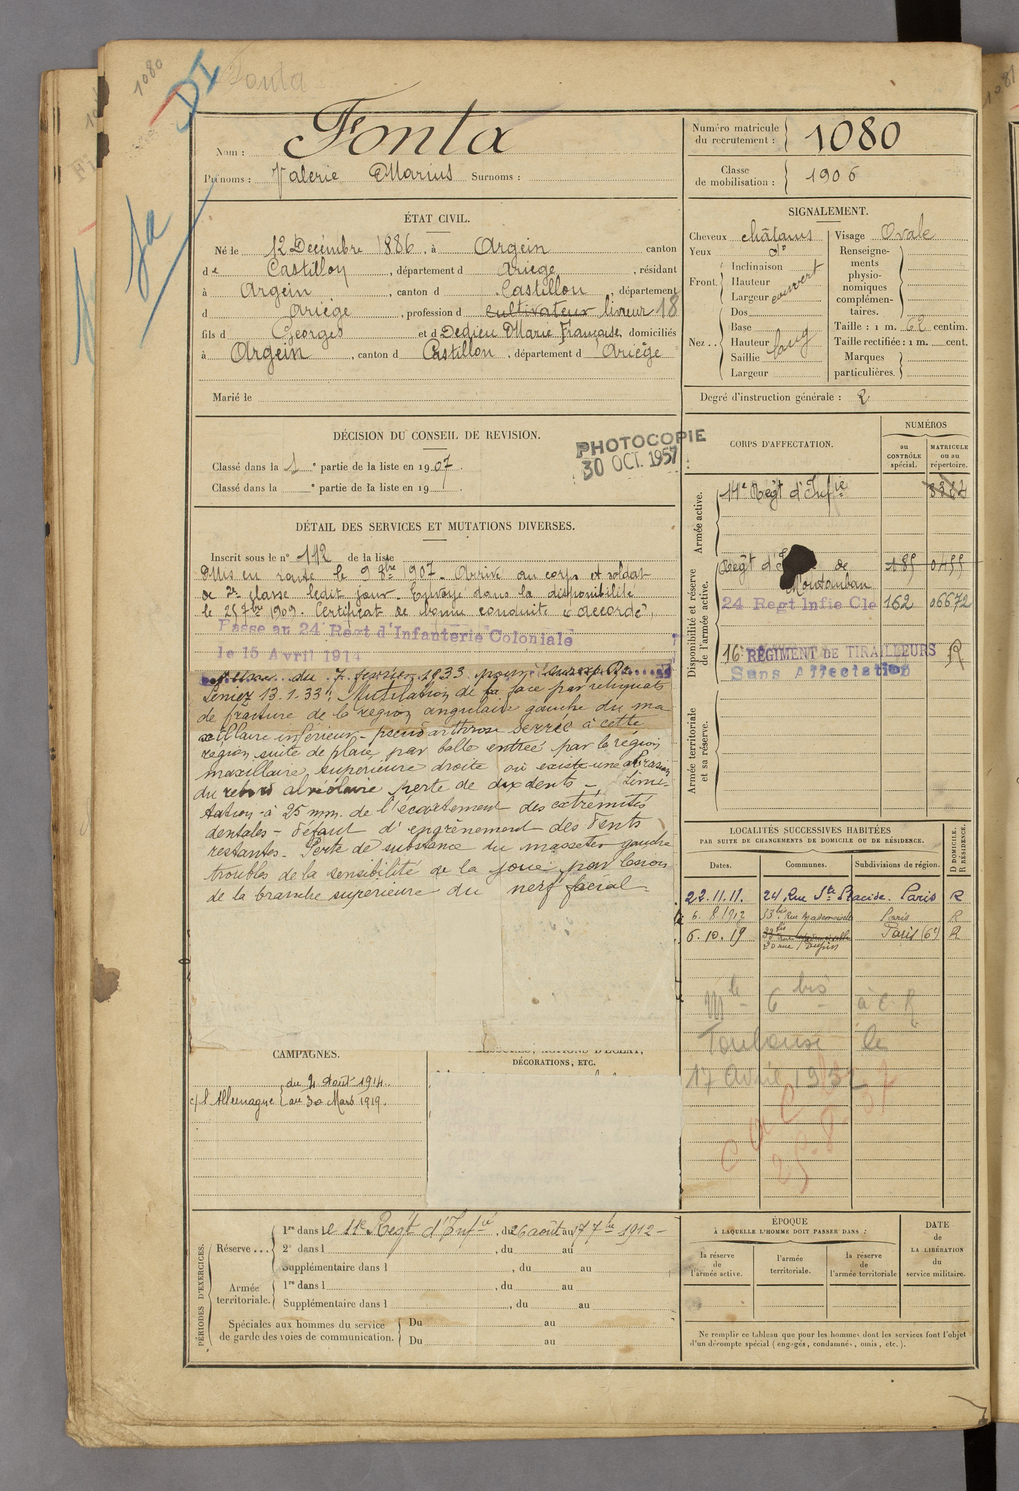 1080
DI
Fonta
Nom : Fonta
Prénoms : Valerie Marius Surnoms :
Numéro matricule
du recrutement : 1080
Classe
de mobilisation : 1906
ÉTAT CIVIL.
Né le 12 Decembre 1886, à Argein canton
de Castillon, département d Ariège, résidant
à Argein, canton d Castillon, département
d Ariège, profession d cultivateur livreur 18
fils d Georges et d Dedieu Marie Française, domiciliés
à Argein, canton d Castillon, département d Ariège
Marié le
SIGNALEMENT.
Cheveux châtains
Yeux do
Front. Inclinaison
Hauteur
Largeur couvert
Nez .. Dos
Base
Hauteur long
Saillie
Largeur
Visage Ovale
Renseigne-
ments
physio-
nomiques
complémen-
taires.
Taille : 1 m. 62 centim.
Taille rectifiée : 1 m. cent.
Marques
particulières.
Degré d'instruction générale : 2
DÉCISION DU CONSEIL DE REVISION.
Classé dans la 1e partie de la liste en 1907.
Classé dans la e partie de la liste en 19
PHOTOCOPIE
30 OCT. 1957
DÉTAIL DES SERVICES ET MUTATIONS DIVERSES.
Inscrit sous le n° 112 de la liste
Mis en route le 9 8bre 1907. Arrivé au corps et soldat
de 2e classe ledit jour. Envoyé dans la disponibilité
le 25 7bre 1909. Certificat de bonne conduite "accordé"
Passé au 24 Régt d'Infanterie Coloniale
le 15 Avril 1914
du 7 février 1933 pour
13.1.33 : Mutilation de la face par reliquats
de fracture de la region angulaire gauche du ma-
xillaire inférieur - pseudarthrose serrée à cette
région, suite de plaie par balle entrée par la région
maxillaire, superieure droite où existe une
du rebord alvéolaire perte de dix dents - Limi-
tation à 25 mm. de l'écartement des extrémités
dentales - défaut d'engrènement des dents
restantes. Perte de substance du masseter gauche
troubles de la sensibilité de la joue par lesion
de la branche superieure du nerf facial -
CORPS D'AFFECTATION.
NUMÉROS
au
CONTRÔLE
spécial.
MATRICULE
ou au
répertoire.
Armée active.
14e Régt d'Infie
Disponibilité et réserve
de l'armée active.
Régt d'I de
Montauban 185 0455
24 Regt Infie Cle 162 06672
16e RÉGIMENT DE TIRAILLEURS R
Sans Affectation
Armée territoriale
et sa réserve.
LOCALITÉS SUCCESSIVES HABITÉES
PAR SUITE DE CHANGEMENTS DE DOMICILE OU DE RÉSIDENCE.
D DOMICILE.
R RÉSIDENCE.
Dates. Communes. Subdivisions de région.
22.11.11. 24, Rue Ste Placide. Paris R
6.8.1912 53bis Rue Mademoiselle Paris R
6.10.19 Paris (6e) R
30 rue Dupin
Mle 6 bis à C.R
Toulouse le
17 Avril 1932
CAMPAGNES.
c/ l'Allemagne du 2 Août 1914.
au 30 Mars 1919.
DÉCORATIONS, ETC.
PÉRIODES D'EXERCICES.
Réserve ... 1re dans le 11e Régt d'Infie, du 26 août au 17 7bre 1912 -
2e dans l , du au
Supplémentaire dans l , du au
Armée
territoriale. 1re dans l , du au
Supplémentaire dans l , du au
Spéciales aux hommes du service
de garde des voies de communication. Du au
Du au
ÉPOQUE
À LAQUELLE L'HOMME DOIT PASSER DANS :
la réserve
de
l'armée active.
l'armée
territoriale.
la réserve
de
l'armée territoriale
DATE
de
LA LIBÉRATION
du
service militaire.
Ne remplir ce tableau que pour les hommes dont les services font l'objet
d'un décompte spécial (engagés, condamnés, omis, etc.).